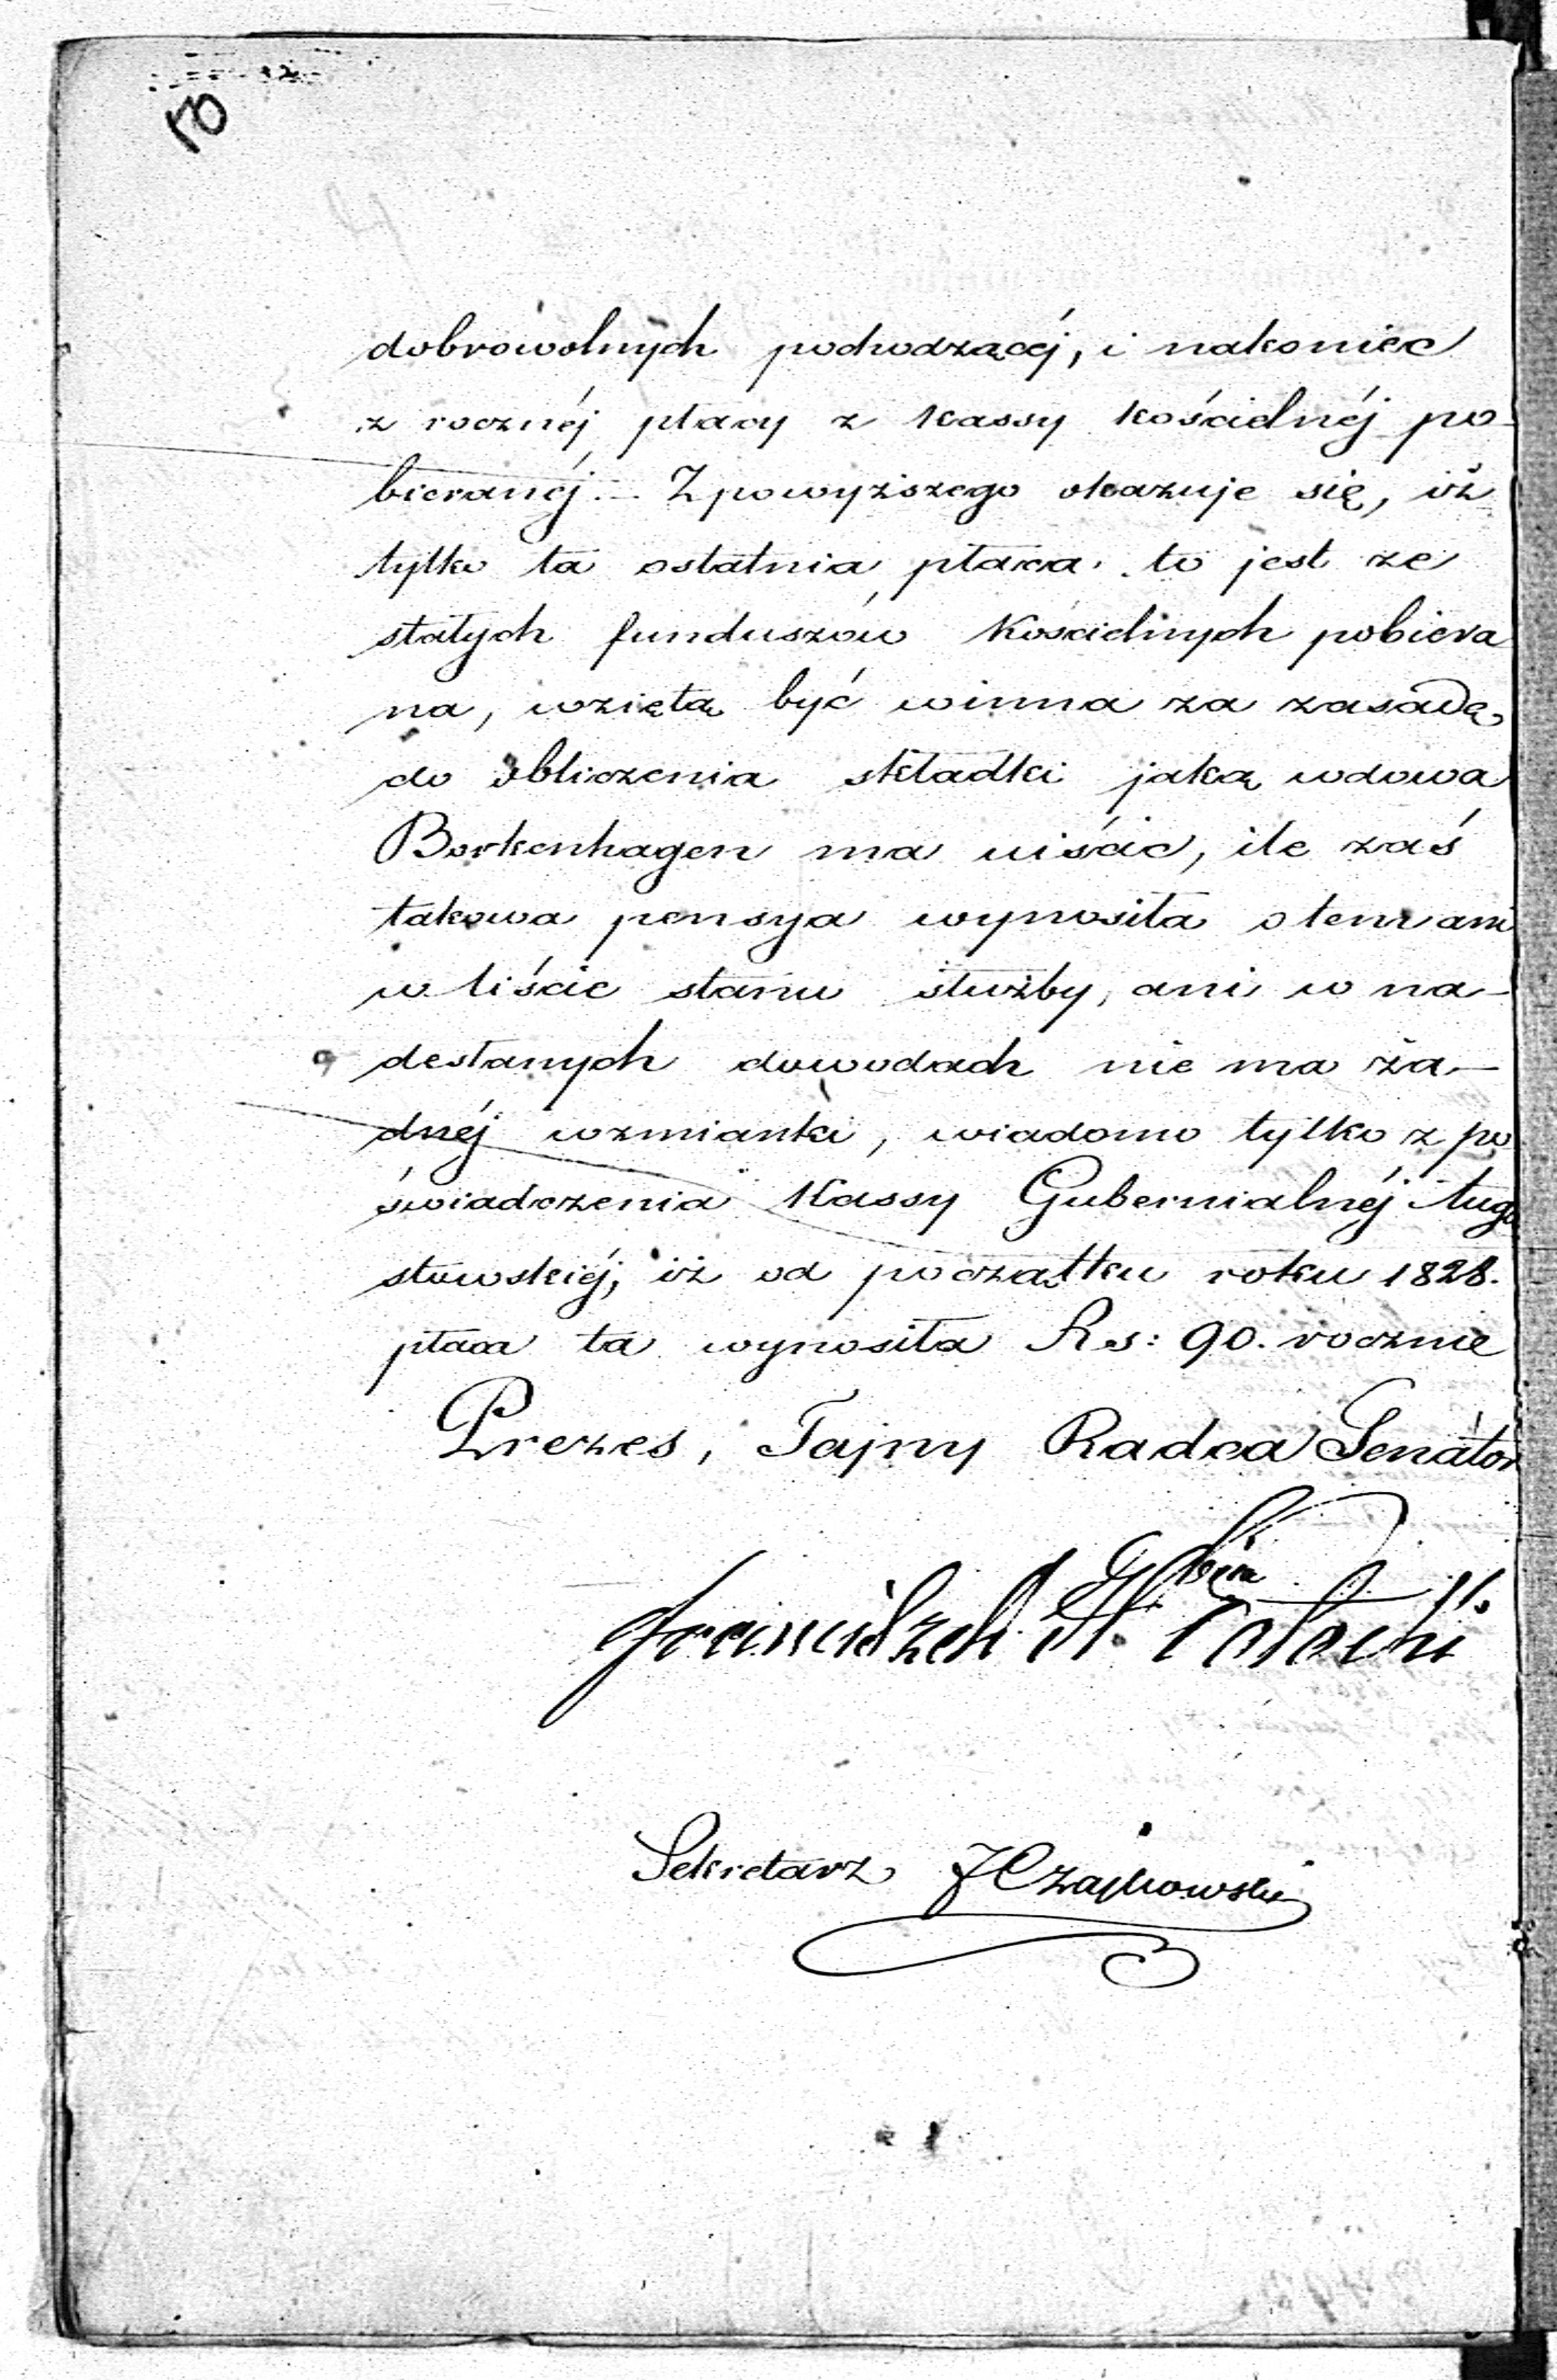 70
dobrowolnych pochodzącéj, i nakoniec
z rocznéj płacy z kassy kościelnéj po-
bieranéj. – Z powyższego okazuje się, iż
tylko ta ostatnia płaca, to jest ze
stałych funduszów kościelnych pobiera
na, wziętą być winna za zasadę,
do obliczenia składki jaką wdowa
Borkenhagen ma uiścić, ile zaś
takowa pensya wynosiła o tem ani
w liście stanu służby, ani w na-
desłanych dowodach nie ma ża-
dnéj wzmianki, wiadomo tylko z po
świadczenia Kassy Gubernialnéj Augu
stowskiéj, iż od początku roku 1828.
płaca ta wynosiła Rs: 90. rocznie
Prezes, Tajny Radca Senator
Franciszek Potocki
Sekretarz JCzajkowski